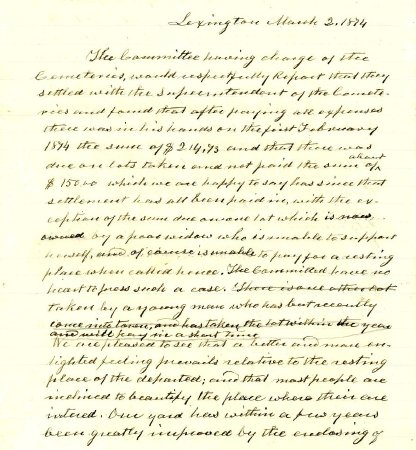 Lexington March 2. 1874
The Committee having charge of the
Cemeteries, would respectfully Report that they
settled with the Superintendent of the Cemete-
ries and found that after paying all expenses
there was in his hands on the first February
1874 the sum of $214,73 and that there was
due on lots taken and not paid the sum of about
$150.00 which we are happy to say has since that
settlement has all been paid in, with the ex-
ception of the sum due on one lot which is now
owned by a poor widow who is unable to support
herself, and of course is unable to pay for a resting
place when called hence. The Committee have no
heart to press such a case. There is one other lot
taken by a young man who has but recently
come into town, and has taken the lot within the year
and will pay in a short time
We are pleased to see that a better and more en-
lighted feeling prevails relative to the resting
place of the departed; and that most people are
inclined to beautify the place where their are
intered. Our yard has within a few years
been greatly improved by the enclosing of